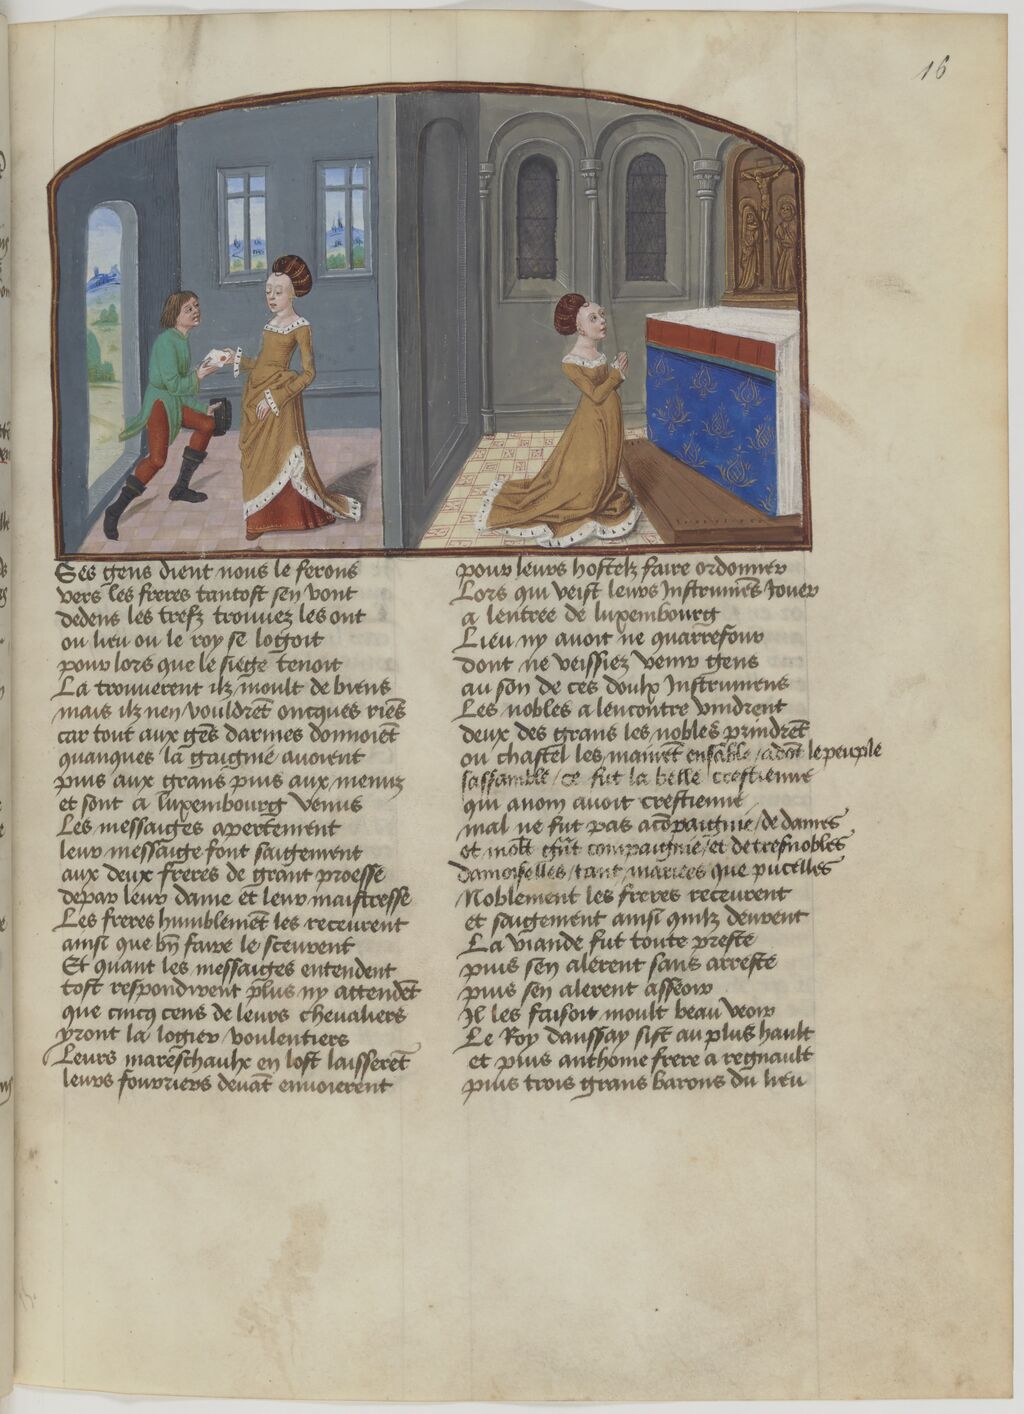 16
Ses gens dient nous le ferons
vers les freres tantost sen vont
dedens les trefz trouvez les ont
ou lieu ou le roy se logoit
pour lors que le siege tenoit
La trouverent ilz moult de biens
mais ilz nen vouldrēt oncques riēs
car tout aux gēs darmes donnoiēt
quanques la gaignie avoient
puis aux grans puis aux menuz
et sont a luxembourg venus
Les messaiges apertement
leur messaige font saigement
aux deux freres de grant proesse
depar leur dame et leur maistresse
Les freres humblemēt les receurent
ainsi que bn̄ faire le sceurent
Et quant les messaiges entendent
tost respondirent plus ny attendēt
que cincq cens de leurs chevaliers
yront la logier voulentiers
Leurs mareschaulx en lost laisserēt
leurs fourriers devāt envoierent
pour leurs hostelz faire ordonner
Lors qui veist leurs Instrumēs Jouer
a lentree de luxembourg
Lieu ny avoit ne quarrefour
dont ne veissiez venir gens
au son de ces doulx Instrumens
Les nobles a lencontre vindrent
deux des grans les nobles prindrēt
ou chastel les mainēt ensāble / adōt le peuple
sassamble / ce fut la belle crestienne
qui a nom avoit crestienne
mal ne fut pas acōpaignie / de dames
et compaignie / et de tresnobles
damoiselles / tant mariees que pucelles
Noblement les freres receurent
et saigement ainsi quilz deurent
La viande fut toute preste
puis sen alerent sans arreste
puis sen alerent asseoir
Il les faisoit moult beau veoir
Le Roy daussay sist au plus hault
et puis anthoine frere a regnault
puis trois grans barons du lieu